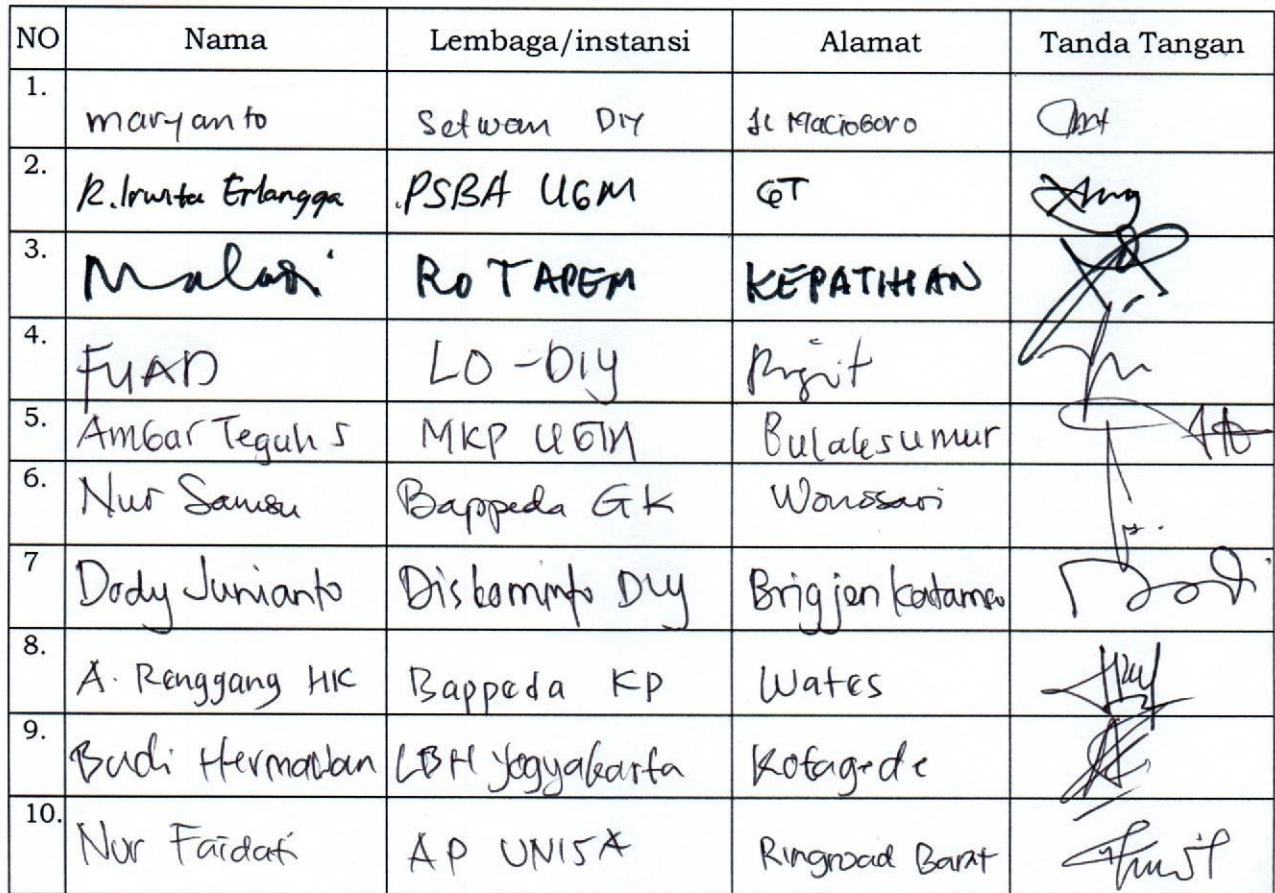 NO Nama Lembaga/instansi Alamat Tanda Tangan
1. maryanto Setwan DIY Jl Macioboro
2. R. Irwita Erlangga PSBA UGM GT
3. RO TAPEM KEPATIHAN
4. FUAD LO-DIY
5. Ambar Teguh S MKP UGM Bulaksumur
6. Nur Bappeda GK Wonosari
7 Dody Junianto Diskominfo DIY Brigjen Katamso
8. A. Renggang HK Bappeda KP Wates
9. Budi Hermawan LBH Yogyakarta Kotagede
10. Nur Faidati AP UNISA Ringroad Barat